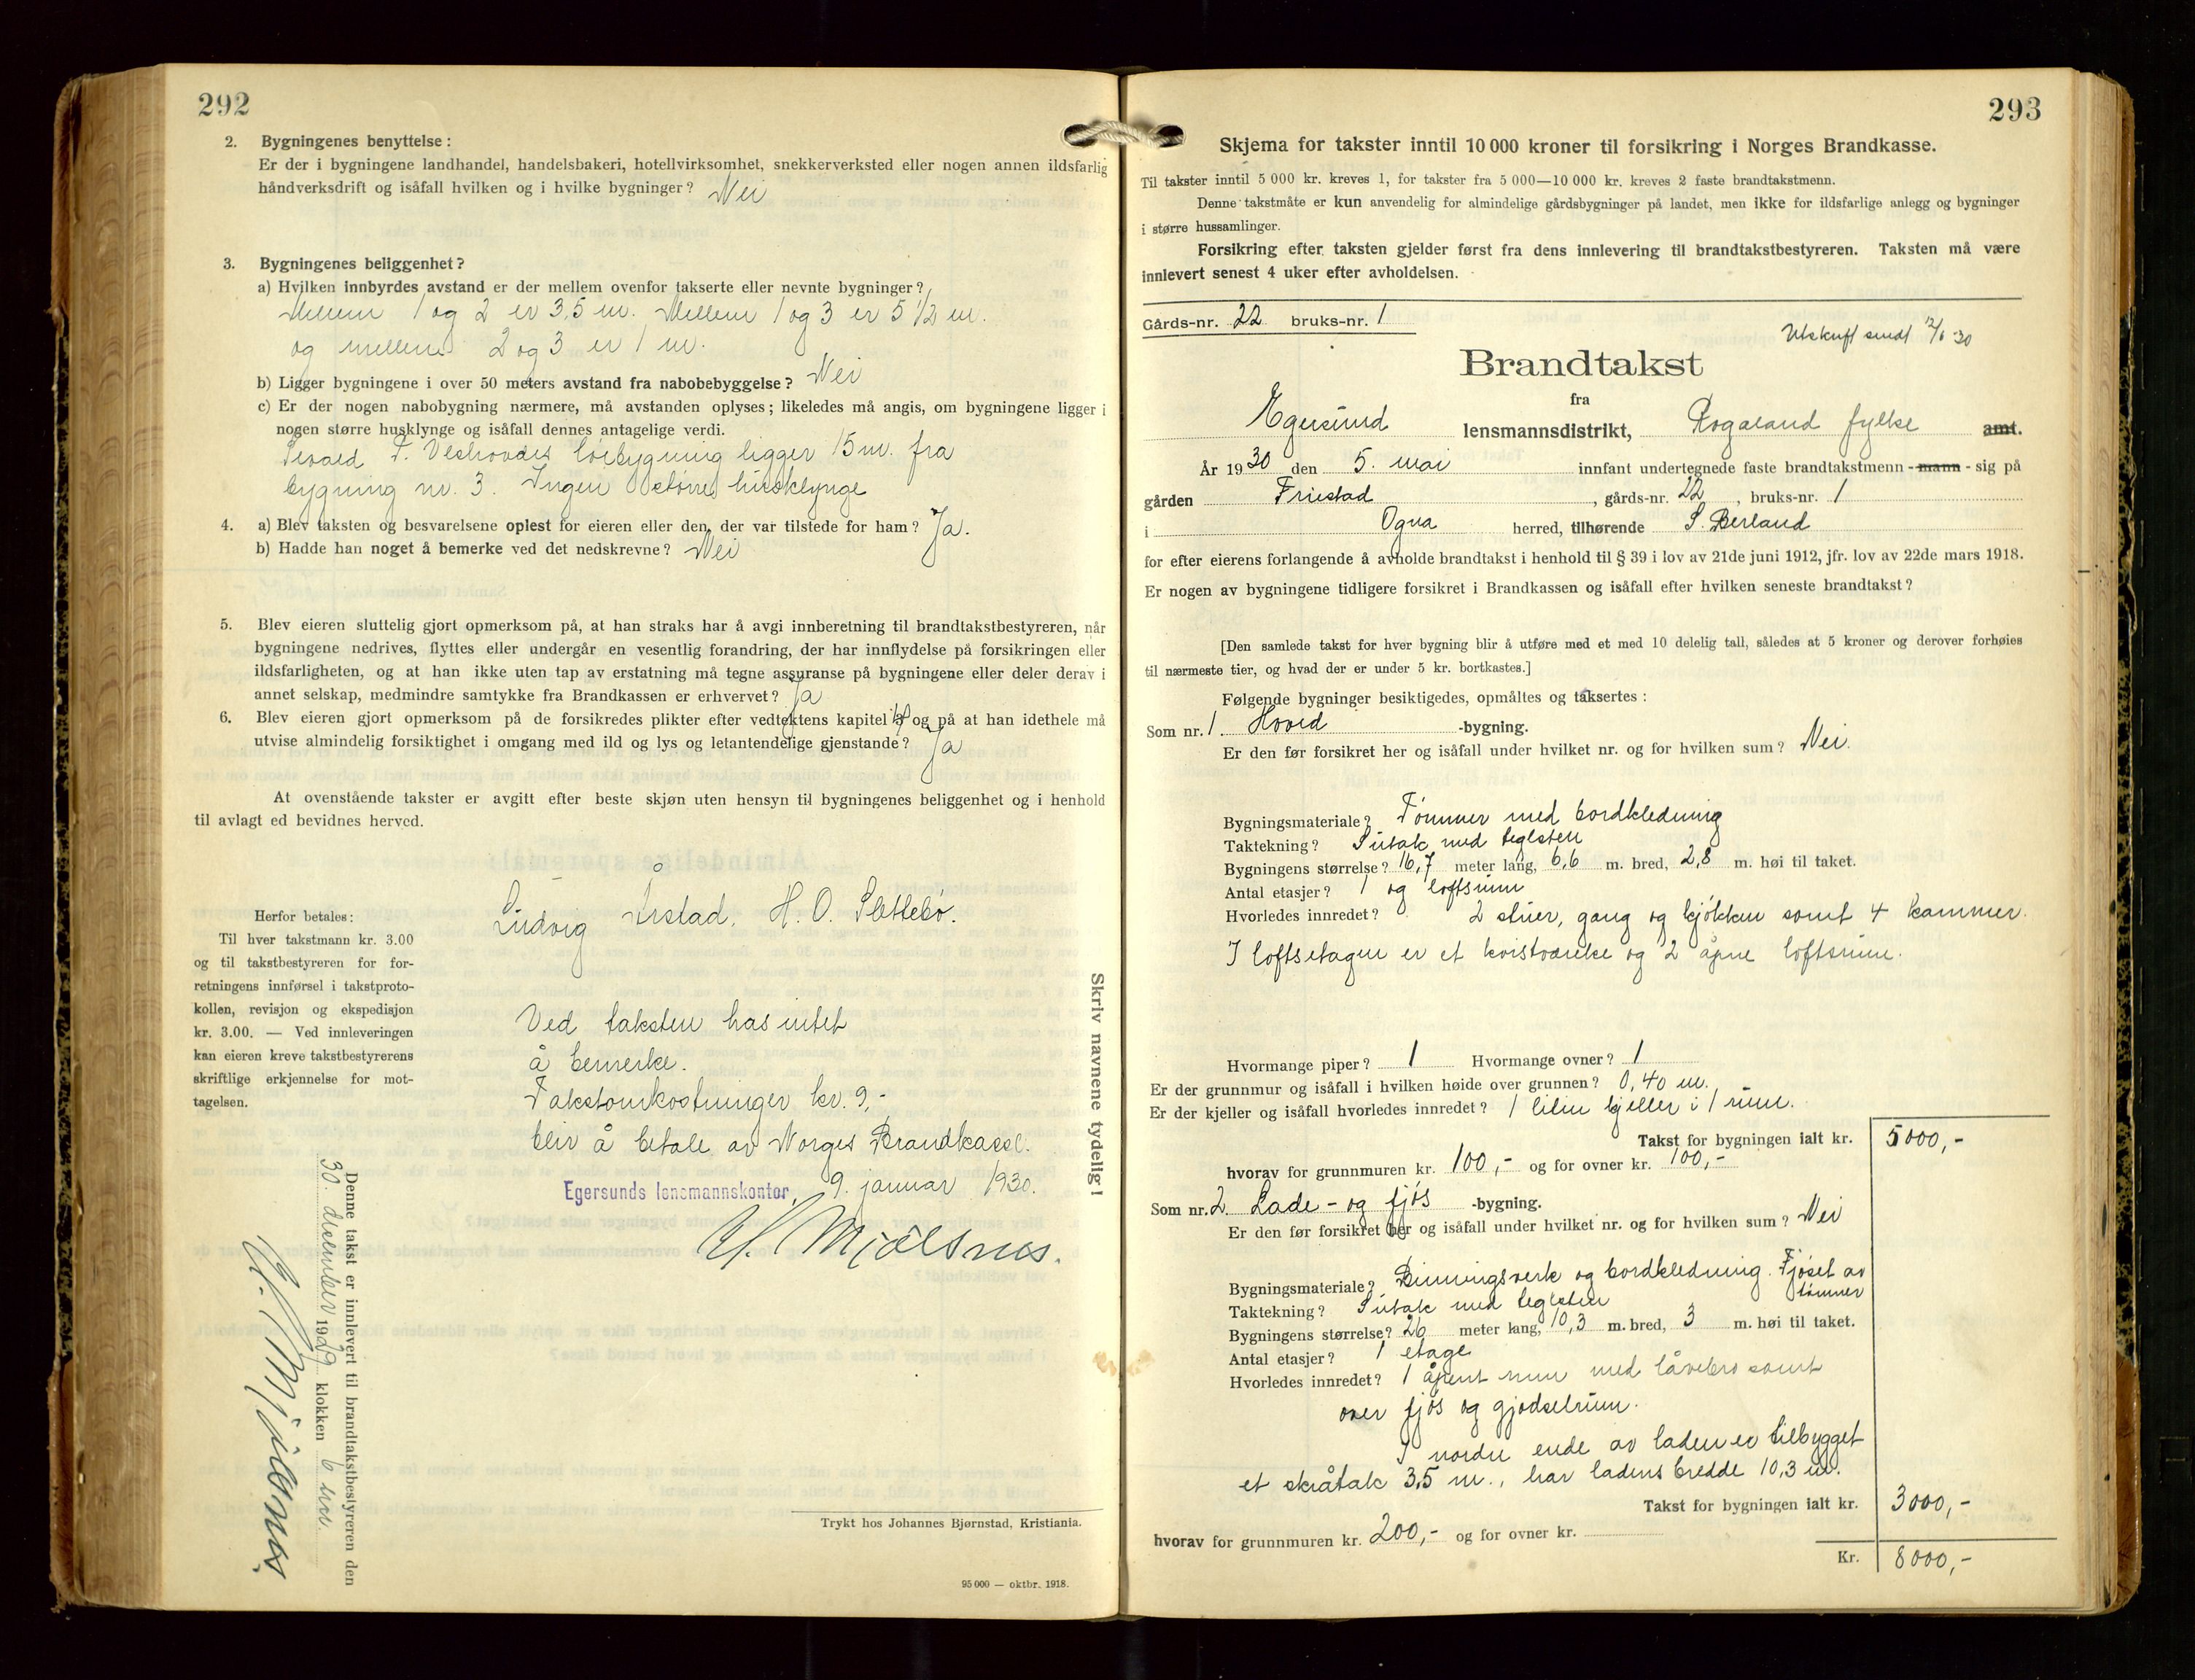 292
2. Bygningenes benyttelse:
Er der i bygningene landhandel, handelsbakeri, hotellvirksomhet, snekkerverksted eller nogen annen ildsfarlig
håndverksdrift og isåfall hvilken og i hvilke bygninger? Nei
3. Bygningenes beliggenhet?
a) Hvilken innbyrdes avstand er der mellem ovenfor takserte eller nevnte bygninger?
Mellem 1 og 2 er 3,5 m. Mellem 1 og 3 er 5 1/2 m.
og mellem 2 og 3 er 1 m.
b) Ligger bygningene i over 50 meters avstand fra nabobebyggelse? Nei
c) Er der nogen nabobygning nærmere, må avstanden oplyses; likeledes må angis, om bygningene ligger i
nogen større husklynge og isåfall dennes antagelige verdi.
F. løebygning ligger 15 m. fra
bygning nr. 3. Ingen større husklynge
4. a) Blev taksten og besvarelsene oplest for eieren eller den, der var tilstede for ham? Ja.
b) Hadde han noget å bemerke ved det nedskrevne? Nei
5. Blev eieren sluttelig gjort opmerksom på, at han straks har å avgi innberetning til brandtakstbestyreren, når
bygningene nedrives, flyttes eller undergår en vesentlig forandring, der har innflydelse på forsikringen eller
ildsfarligheten, og at han ikke uten tap av erstatning må tegne assuranse på bygningene eller deler derav i
annet selskap, medmindre samtykke fra Brandkassen er erhvervet? Ja
6. Blev eieren gjort opmerksom på de forsikredes plikter efter vedtektens kapitel og på at han idethele må
utvise almindelig forsiktighet i omgang med ild og lys og letantendelige gjenstande? Ja
At ovenstående takster er avgitt efter beste skjøn uten hensyn til bygningenes beliggenhet og i henhold
til avlagt ed bevidnes herved.
Ludvig Årstad. H. O. Slettebø.
Herfor betales:
Til hver takstmann kr. 3.00
og til takstbestyreren for for-
retningens innførsel i takstproto-
kollen, revisjon og ekspedisjon
kr. 3.00. — Ved innleveringen
kan eieren kreve takstbestyrerens
skriftlige erkjennelse for mot-
tagelsen.
Ved taksten has intet
å bemerke.
Takstomkostninger kr. 9,-
blir å betale av Norges Brandkasse.
Egersunds lensmannskontor, 9. januar 1930.
H. Mjølsnes.
Skriv navnene tydelig!
Denne takst er innlevert til brandtakstbestyreren den
30. desember 1929 klokken 6 
H. Mjølsnes.
Trykt hos Johannes Bjørnstad, Kristiania.
95 000 — oktbr. 1918.
293
Skjema for takster inntil 10 000 kroner til forsikring i Norges Brandkasse.
Til takster inntil 5 000 kr. kreves 1, for takster fra 5 000—10 000 kr. kreves 2 faste brandtakstmenn.
Denne takstmåte er kun anvendelig for almindelige gårdsbygninger på landet, men ikke for ildsfarlige anlegg og bygninger
i større hussamlinger.
Forsikring efter taksten gjelder først fra dens innlevering til brandtakstbestyreren. Taksten må være
innlevert senest 4 uker efter avholdelsen.
Gårds-nr. 22 bruks-nr. 1
Utskrift sendt 12/6 30
Brandtakst
fra
Egersund lensmannsdistrikt, Rogaland fylke amt.
År 1930 den 5. mai innfant undertegnede faste brandtakstmenn - mann - sig på
gården Friestad, gårds-nr. 22, bruks-nr. 1
i Ogna herred, tilhørende S. Berland
for efter eierens forlangende å avholde brandtakst i henhold til § 39 i lov av 21de juni 1912, jfr. lov av 22de mars 1918.
Er nogen av bygningene tidligere forsikret i Brandkassen og isåfall efter hvilken seneste brandtakst?
[Den samlede takst for hver bygning blir å utføre med et med 10 delelig tall, således at 5 kroner og derover forhøies
til nærmeste tier, og hvad der er under 5 kr. bortkastes.]
Følgende bygninger besiktigedes, opmåltes og taksertes:
Som nr. 1. Hoved -bygning.
Er den før forsikret her og isåfall under hvilket nr. og for hvilken sum? Nei.
Bygningsmateriale? Tømmer med bordkledning
Taktekning? Sutak med teglsten
Bygningens størrelse? 16,7 meter lang, 6,6 m. bred, 2,8 m. høi til taket.
Antal etasjer? 1 og loftsrum
Hvorledes innredet? 2 stuer, gang og kjøkken samt 4 kammer.
I loftsetagen er et kvistværelse og 2 åpne loftsrum.
Hvormange piper? 1 Hvormange ovner? 1
Er der grunnmur og isåfall i hvilken høide over grunnen? 0,40 m.
Er der kjeller og isåfall hvorledes innredet? 1 liten kjeller i 1 rum.
Takst for bygningen ialt kr. 5000,-
hvorav for grunnmuren kr. 100,- og for ovner kr. 100,-
Som nr. 2. Lade- og fjøs -bygning.
Er den før forsikret her og isåfall under hvilket nr. og for hvilken sum? Nei
Bygningsmateriale? Binningsverk og bordkledning. Fjøset av
tømmer
Taktekning? Sutak med teglsten
Bygningens størrelse? 26 meter lang, 10,3 m. bred, 3 m. høi til taket.
Antal etasjer? 1 etage
Hvorledes innredet? 1 åpent rum med låvebro samt
over fjøs og gjødselrum.
I nordre ende av laden er tilbygget
et skråtak 3,5 m., har ladens bredde 10,3 m.
Takst for bygningen ialt kr. 3000,-
hvorav for grunnmuren kr. 200,- og for ovner kr.
Kr. 8000,-